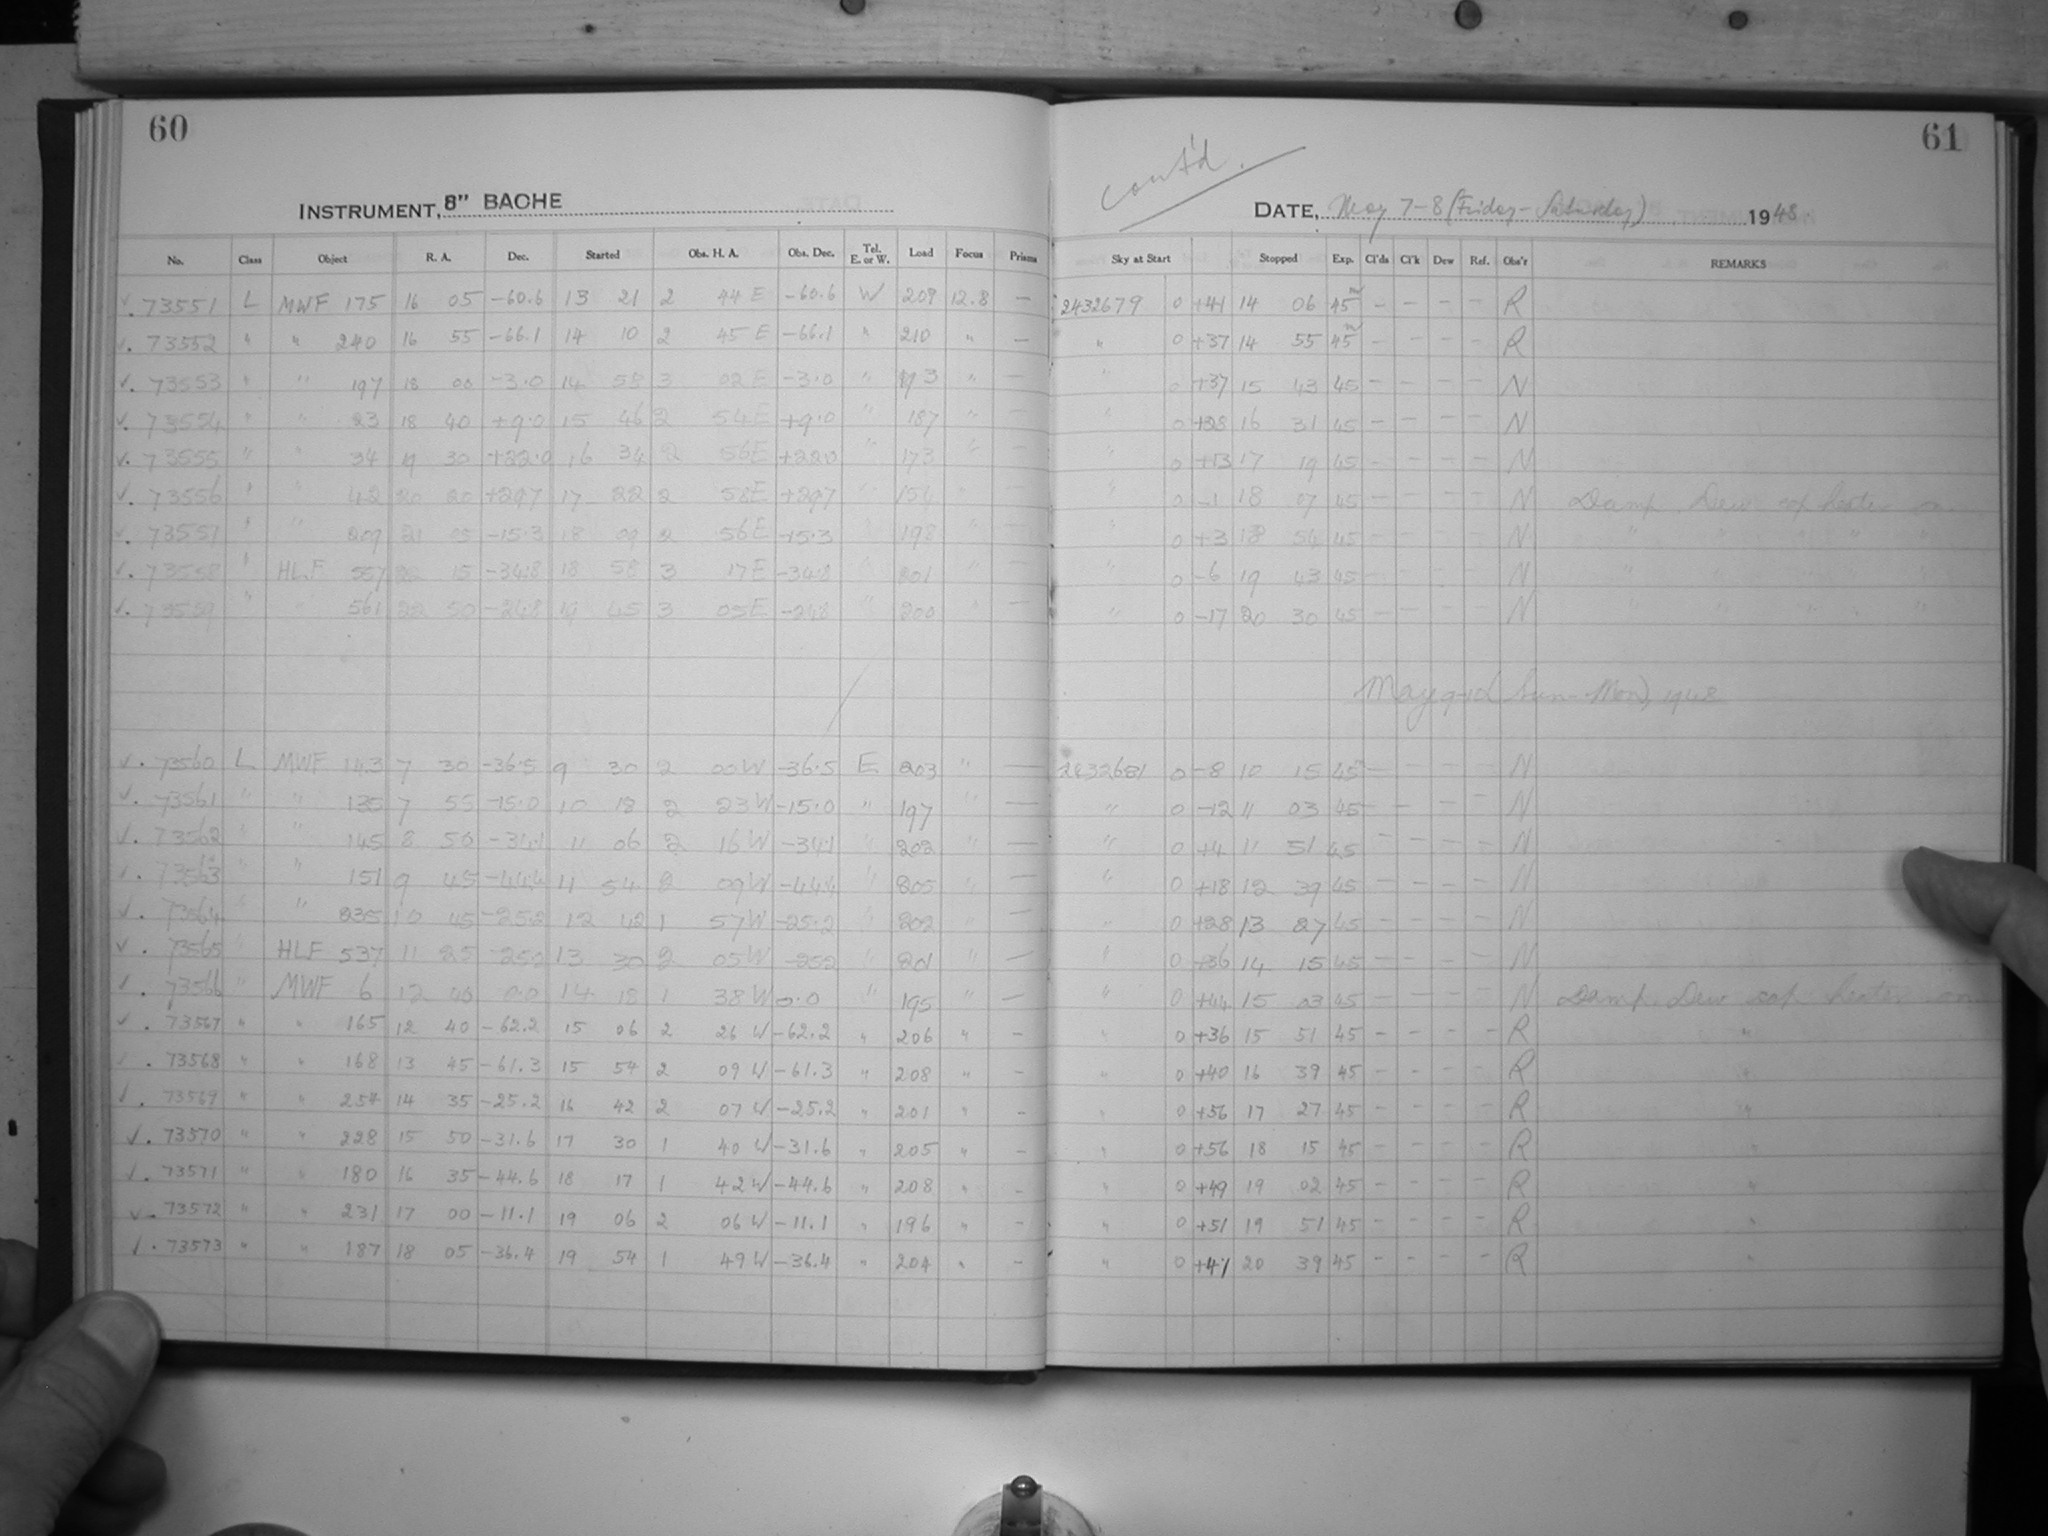 60
INSTRUMENT, 8" BACHE
No. Class Object R. A. Dec. Started Obs. H. A. Obs. Dec. Tel. E. or W. Load Focus Prisms
✓. 73551 L MWF 175 16 05 -60.6 13 21 2 44 E -60.6 W 209 12.8 —
✓. 73552 " " 240 16 55 -66.1 14 10 2 45 E -66.1 " 210 " —
✓. 73553 " " 197 18 00 -3.0 14 58 3 02 E -3.0 " " —
✓. 73554 " " 23 18 40 +9.0 15 46 2 54 E +9.0 " 187 " —
✓. 73555 " " 34 19 30 +22.0 16 34 2 56 E +22.0 " 173 " —
✓. 73556 " " 42 20 20 +29.7 17 22 2 58 E +29.7 " 154 " —
✓. 73557 " " 209 21 05 -15.3 18 09 2 56 E -15.3 " 198 " —
✓. 73558 " HLF 557 22 15 -34.8 18 58 3 17 E -34.8 " 201 " —
✓. 73559 " " 561 22 50 -24.8 19 45 3 05 E -24.8 " 200 " —
✓. 73560 L MWF 143 7 30 -36.5 9 30 2 00 W -36.5 E 203 " —
✓. 73561 " " 135 7 55 -15.0 10 18 2 23 W -15.0 " 197 " —
✓. 73562 " " 145 8 50 -34.1 11 06 2 16 W -34.1 " 202 " —
✓. 73563 " " 151 9 45 -44.4 11 54 2 09 W -44.4 " 205 " —
✓. 73564 " " 235 10 45 -25.2 12 42 1 57 W -25.2 " 202 " —
✓. 73565 " HLF 537 11 25 -25.2 13 30 2 05 W -25.2 " 201 " —
✓. 73566 " MWF 6 12 40 0.0 14 18 1 38 W 0.0 " 195 " —
✓. 73567 " " 165 12 40 -62.2 15 06 2 26 W -62.2 " 206 " —
✓. 73568 " " 168 13 45 -61.3 15 54 2 09 W -61.3 " 208 " —
✓. 73569 " " 257 14 35 -25.2 16 42 2 07 W -25.2 " 201 " —
✓. 73570 " " 228 15 50 -31.6 17 30 1 40 W -31.6 " 205 " —
✓. 73571 " " 180 16 35 -44.6 18 17 1 42 W -44.6 " 208 " —
✓. 73572 " " 231 17 00 -11.1 19 06 2 06 W -11.1 " 196 " —
✓. 73573 " " 187 18 05 -36.4 19 54 1 49 W -36.4 " 204 " —
61
cont'd.
DATE, May 7-8 (Friday-Saturday) 1948
Sky at Start Stopped Exp. Cl'ds Cl'k Dew Ref. Obs'r REMARKS
2432679 0 +41 14 06 45m — — — — R
" 0 +37 14 55 45m — — — — R
" 0 +37 15 43 45 — — — — N
" 0 +28 16 31 45 — — — — N
" 0 +13 17 19 45 — — — — N
" 0 -1 18 07 45 — — — — N Damp. Dew cap heater on
" 0 +3 18 54 45 — — — — N " " " " "
" 0 -6 19 43 45 — — — — N " " " " "
" 0 -17 20 30 45 — — — — N " " " "
May 9-10 (Sun-Mon), 1948
2432681 0 -8 10 15 45 — — — — N
" 0 -12 11 03 45 — — — — N
" 0 +4 11 51 45 — — — — N
" 0 +18 12 39 45 — — — — N
" 0 +28 13 27 45 — — — — N
" 0 +36 14 15 45 — — — — N
" 0 +44 15 03 45 — — — — N Damp. Dew cap heater on
" 0 +36 15 51 45 — — — — R "
" 0 +40 16 39 45 — — — — R "
" 0 +56 17 27 45 — — — — R "
" 0 +56 18 15 45 — — — — R "
" 0 +49 19 02 45 — — — — R "
" 0 +51 19 51 45 — — — — R "
" 0 +47 20 39 45 — — — — R "